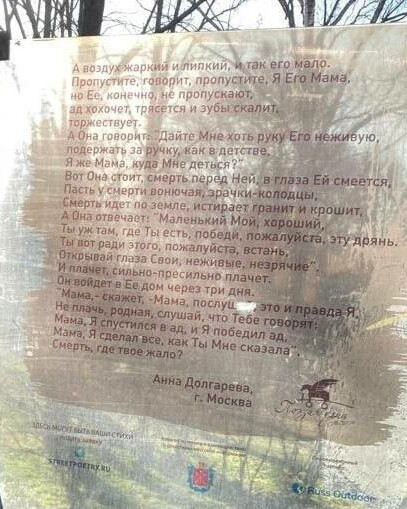 А воздух жаркий и липкий, и так его мало.
Пропустите, говорит, пропустите, Я Его Мама,
но Ее, конечно, не пропускают,
ад хохочет, трясется и зубы скалит,
торжествует.
А Она говорит: "Дайте Мне хоть руку Его неживую,
подержать за ручку, как в детстве.
Я же Мама, куда Мне деться?"
Вот Она стоит, смерть перед Ней, в глаза Ей смеется,
Пасть у смерти вонючая, зрачки-колодцы,
Смерть идет по земле, истирает гранит и крошит,
А Она отвечает: "Маленький Мой, хороший,
Ты уж там, где Ты есть, победи, пожалуйста, эту дрянь.
Ты вот ради этого, пожалуйста, встань,
Открывай глаза Свои, неживые, незрячие".
И плачет, сильно-пресильно плачет.
Он войдет в Ее дом через три дня.
"Мама,- скажет, -Мама, послуш это и правда Я,
Не плачь, родная, слушай, что Тебе говорят:
Мама, Я спустился в ад, и Я победил ад,
Мама, Я сделал все, как Ты Мне сказала".
Смерть, где твое жало?
Анна Долгарева,
г. Москва
ЗДЕСЬ МОГУТ БЫТЬ ВАШИ СТИХИ
STREETPOETRY.RU
Russ Outdoor